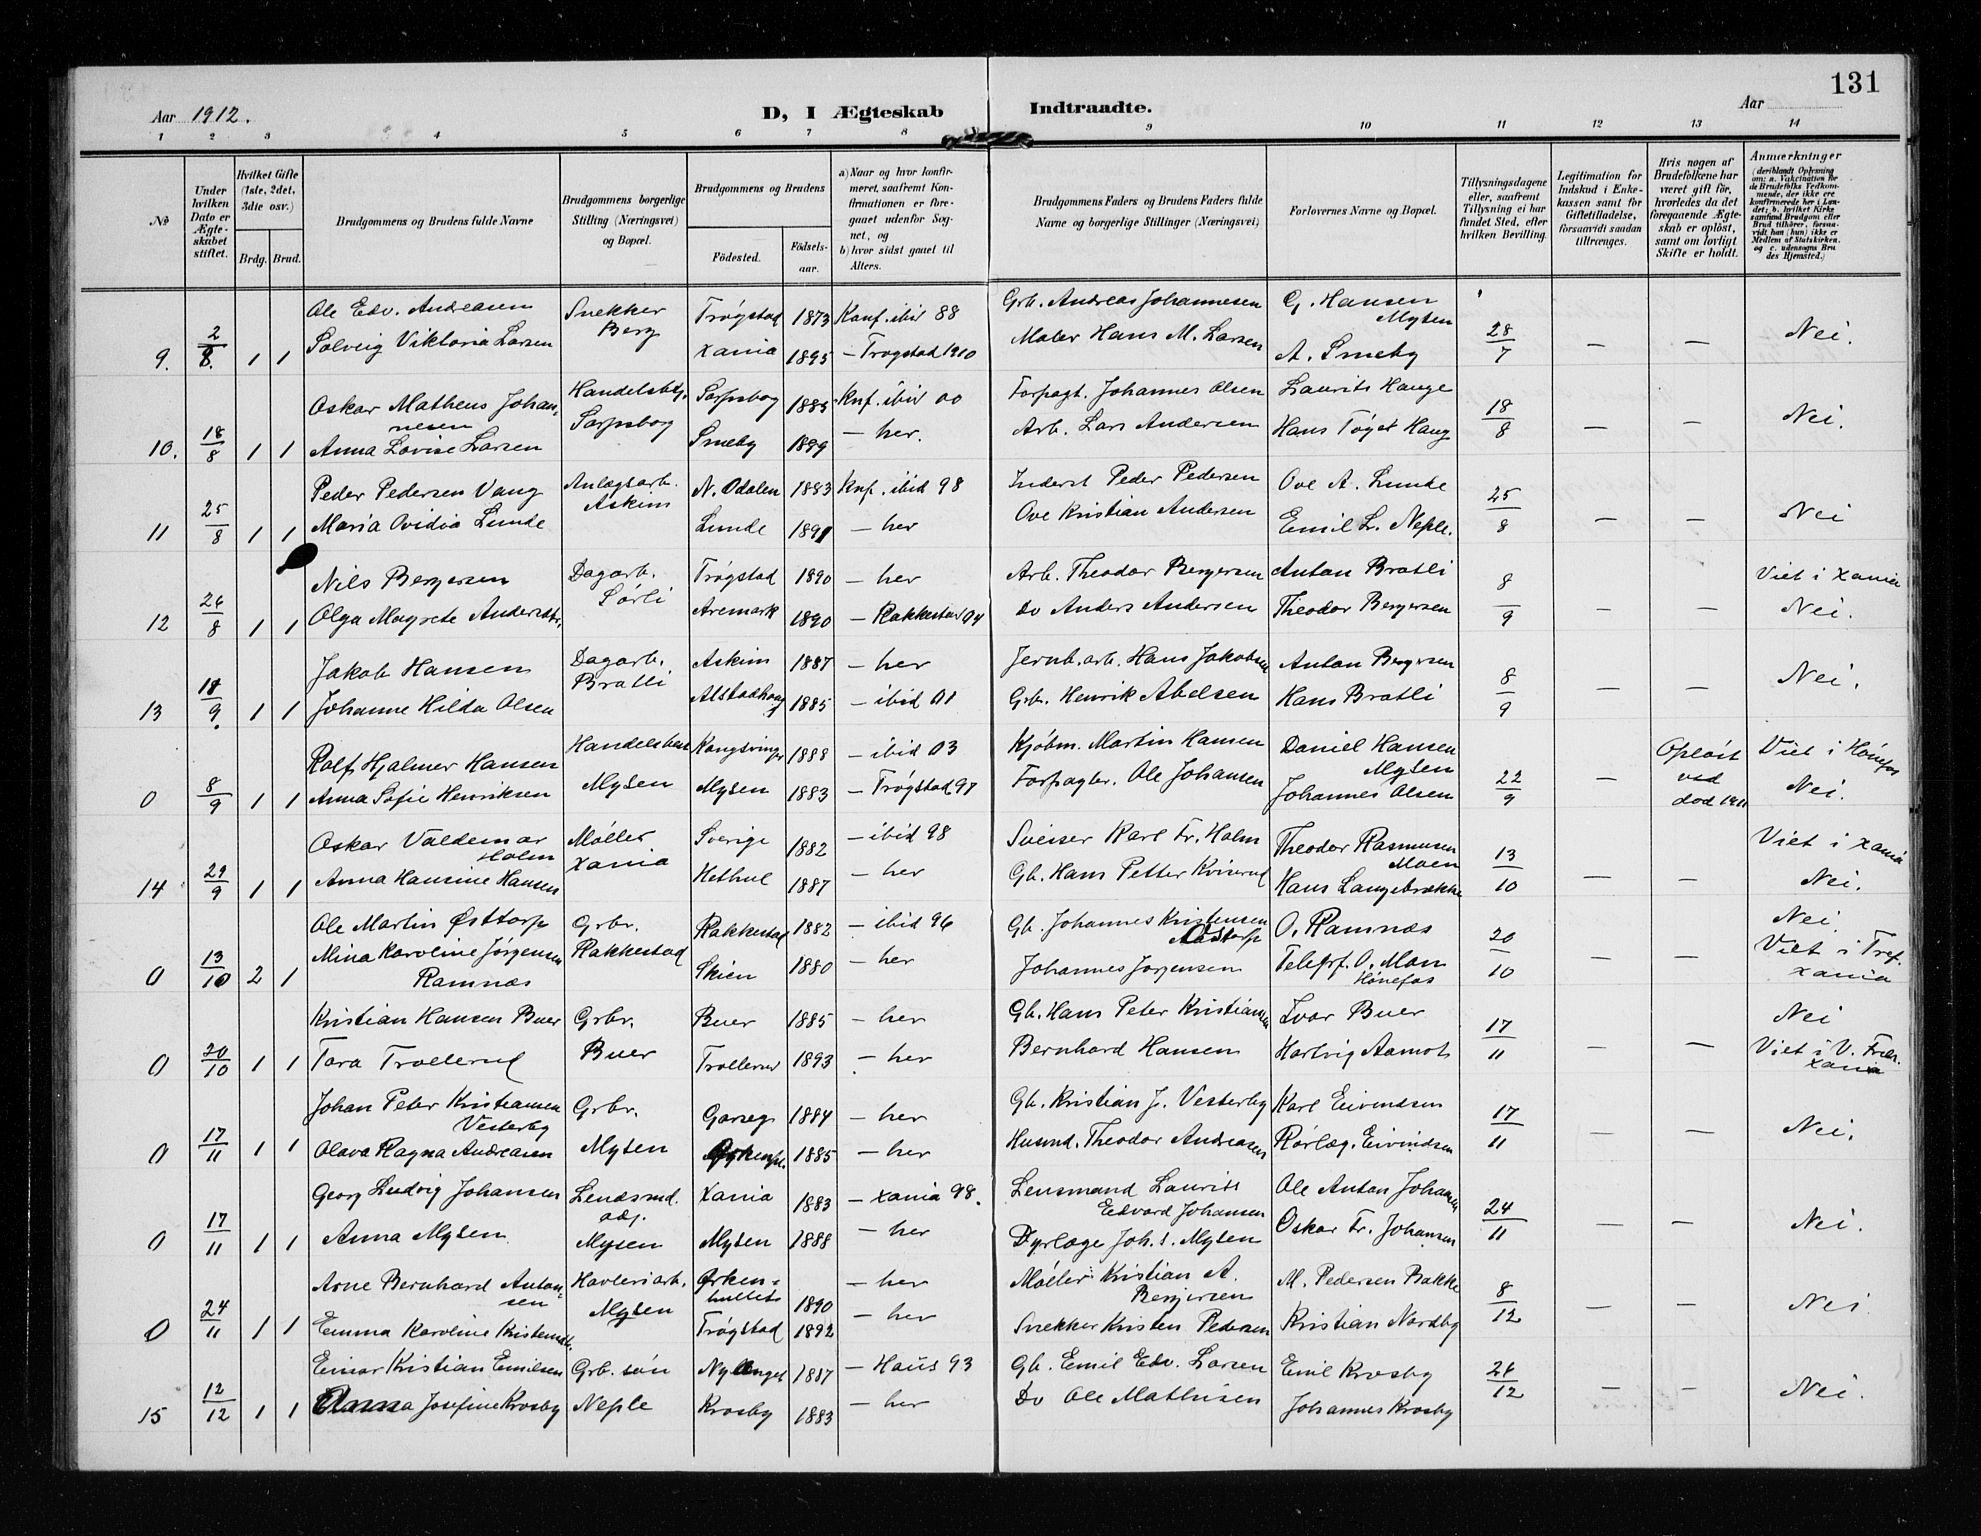 131
Aar 1912.
D, I Ægteskab Indtraadte.
Aar
1 2 3 4 5 6 7 8 9 10 11 12 13 14
№
Under hvilken Dato er Ægteskabet stiftet.
Hvilket Gifte (1ste, 2det, 3die osv.)
Brdg. Brud.
Brudgommens og Brudens fulde Navne
Brudgommens borgerlige Stilling (Næringsvei) og Bopæl.
Brudgommens og Brudens
Fødested. Fødselsaar.
a) Naar og hvor konfirmeret, saafremt Konfirmationen er foregaaet udenfor Sognet, og
b) hvor sidst gaaet til Alters.
Brudgommens Faders og Brudens Faders fulde Navne og borgerlige Stillinger (Næringsvei)
Forlovernes Navne og Bopæl.
Tillysningsdagene eller, saafremt Tillysning ei har fundet Sted, efter hvilken Bevilling.
Legitimation for Indskud i Enkekassen samt for Giftetilladelse, forsaavidt saadan tiltrænges.
Hvis nogen af Brudefolkene har været gift før, hvorledes da det foregaaende Ægteskab er opløst, samt om lovligt Skifte er holdt.
Anmærkninger
Ole Edv. Andreasen Snekker Trøgstad 1873 Konf. ibid 88 Grb. Andreas Johannesen G. Hansen
Berg Mysen
9. 2/8. 1 1 Solveig Viktoria Larsen Xania 1895 – Trøgstad 1910 Maler Hans M. Larsen A. Smeby 28/7 – – Nei.
Oskar Matheus Johannesen Handelsbet. Sarpsborg 1885 Knf. ibid 00 Forpagt. Johannes Olsen Laurits Hauge
Sarpsborg
10. 18/8 1 1 Anna Lovise Larsen Smeby 1899 – her. Arb. Lars Andersen Hans Tøget Haug 18/8 – – Nei.
Peder Pedersen Vang Anlægsarb. N. Odalen 1883 Knf. ibid 98 Inderst Peder Pedersen Ove A. Lunde
Askim
11 25/8 1 1 Maria Ovidia Lunde Lunde 1891 – her Ove Kristian Andersen Emil L. Neple. 25/8 – – Nei
Nils Bergersen Dagarb. Trøgstad 1890 – her Arb. Theodor Bergersen Anton Bratli Viet i Xania
Sørli
12 26/8 1 1 Olga Magrete Andersdtr. Aremark 1890 – Rakkestad 04 Do Anders Andersen Theodor Bergersen 8/9 – – Nei.
Jakob Hansen Dagarb. Askim 1887 – her Jernb.arb. Hans Jakobsen Anton Bergersen
Bratli
13 18/9. 1 1 Johanne Hilda Olsen Alstadhoug 1885 – ibid 01 Grb. Henrik Abelsen Hans Bratli 8/9 – – Nei.
Rolf Hjalmer Hansen Handelsbest Kongsvinger 1888 – ibid 03 Kjøbm. Martin Hansen Daniel Hansen Opløst Viet i Hønefos
Mysen
0 8/9 1 1 Anna Sofie Henriksen Mysen Mysen 1883 – Trøgstad 97 Forpagter. Ole Johansen Johannes Olsen 22/9 – ved død 1911 Nei.
Oskar Valdemar Holm Møller Sverige 1882 – ibid 98 Sveiser Karl Fr. Holm Theodor Rasmusen Moen Viet i Xania
Xania
14 29/9 1 1 Anna Hansine Hansen Hethul 1887 – her Gb. Hans Petter Kviserud Hans Langebrække 13/10 – – Nei.
Ole Martin Østtorp Grbr. Rakkestad 1882 – ibid 96 Gb. Johannes Kristensen O. Ramnæs Nei
Rakkestad
0 13/10 2 1 Mina Karoline Jørgensen Ramnæs Skien 1880 – her Johannes Jørgensen Telegrf. O. Moen Hønefos 20/10 – – Viet i Tref. Xania
Kristian Hansen Buer Grbr. Buer 1885 – her Gb. Hans Peter Kristiansen Ivar Buer Nei
Buer
0 20/10 1 1 Tora Trollerud Trollerud 1893 – her Bernhard Hansen Hartvig Aamot 17/11 – – Viet i V. Frer. Xania
Johan Peter Kristiansen Vesterby Grbr. Gareg 1884 – her Gb. Kristian J. Vesterby Karl Eivendsen
Mysen
0 17/11 1 1 Olava Ragna Andreasen 1885 – her Husmd. Theodor Andreasen Rørlæg. Eivindsen 17/11 – – Nei.
Georg Ludvig Johansen Lendsmd. adj. Xania 1883 – Xania 98. Lensmand Laurits Edvard Johansen Ole Anton Johansen
Mysen
0 17/11 1 1 Anna Mysen Mysen 1888 – her Dyrlæge Joh. S. Mysen Oskar Fr. Johansen 24/11 – – Nei.
Arne Bernhard Antonsen Havleriarb. Ørkenhullets 1890 – her Møller Kristian A. Bergersen M. Pedersen Bakke
Mysen
0 24/11 1 1 Emma Karoline Trøgstad 1892 – her Snekker Kristen Pedersen Kristian Nordby 8/12 – – Nei.
Einar Kristian Emilsen Grb. søn Nyenget 1887 – Haüs 93 Gb. Emil Edv. Larsen Emil Krosby
Neple
15 12/12 1 1 Anna Josefine Krosby Krosby 1883 – her Do Ole Mathisen Johannes Krosby 26/12 – – Nei.